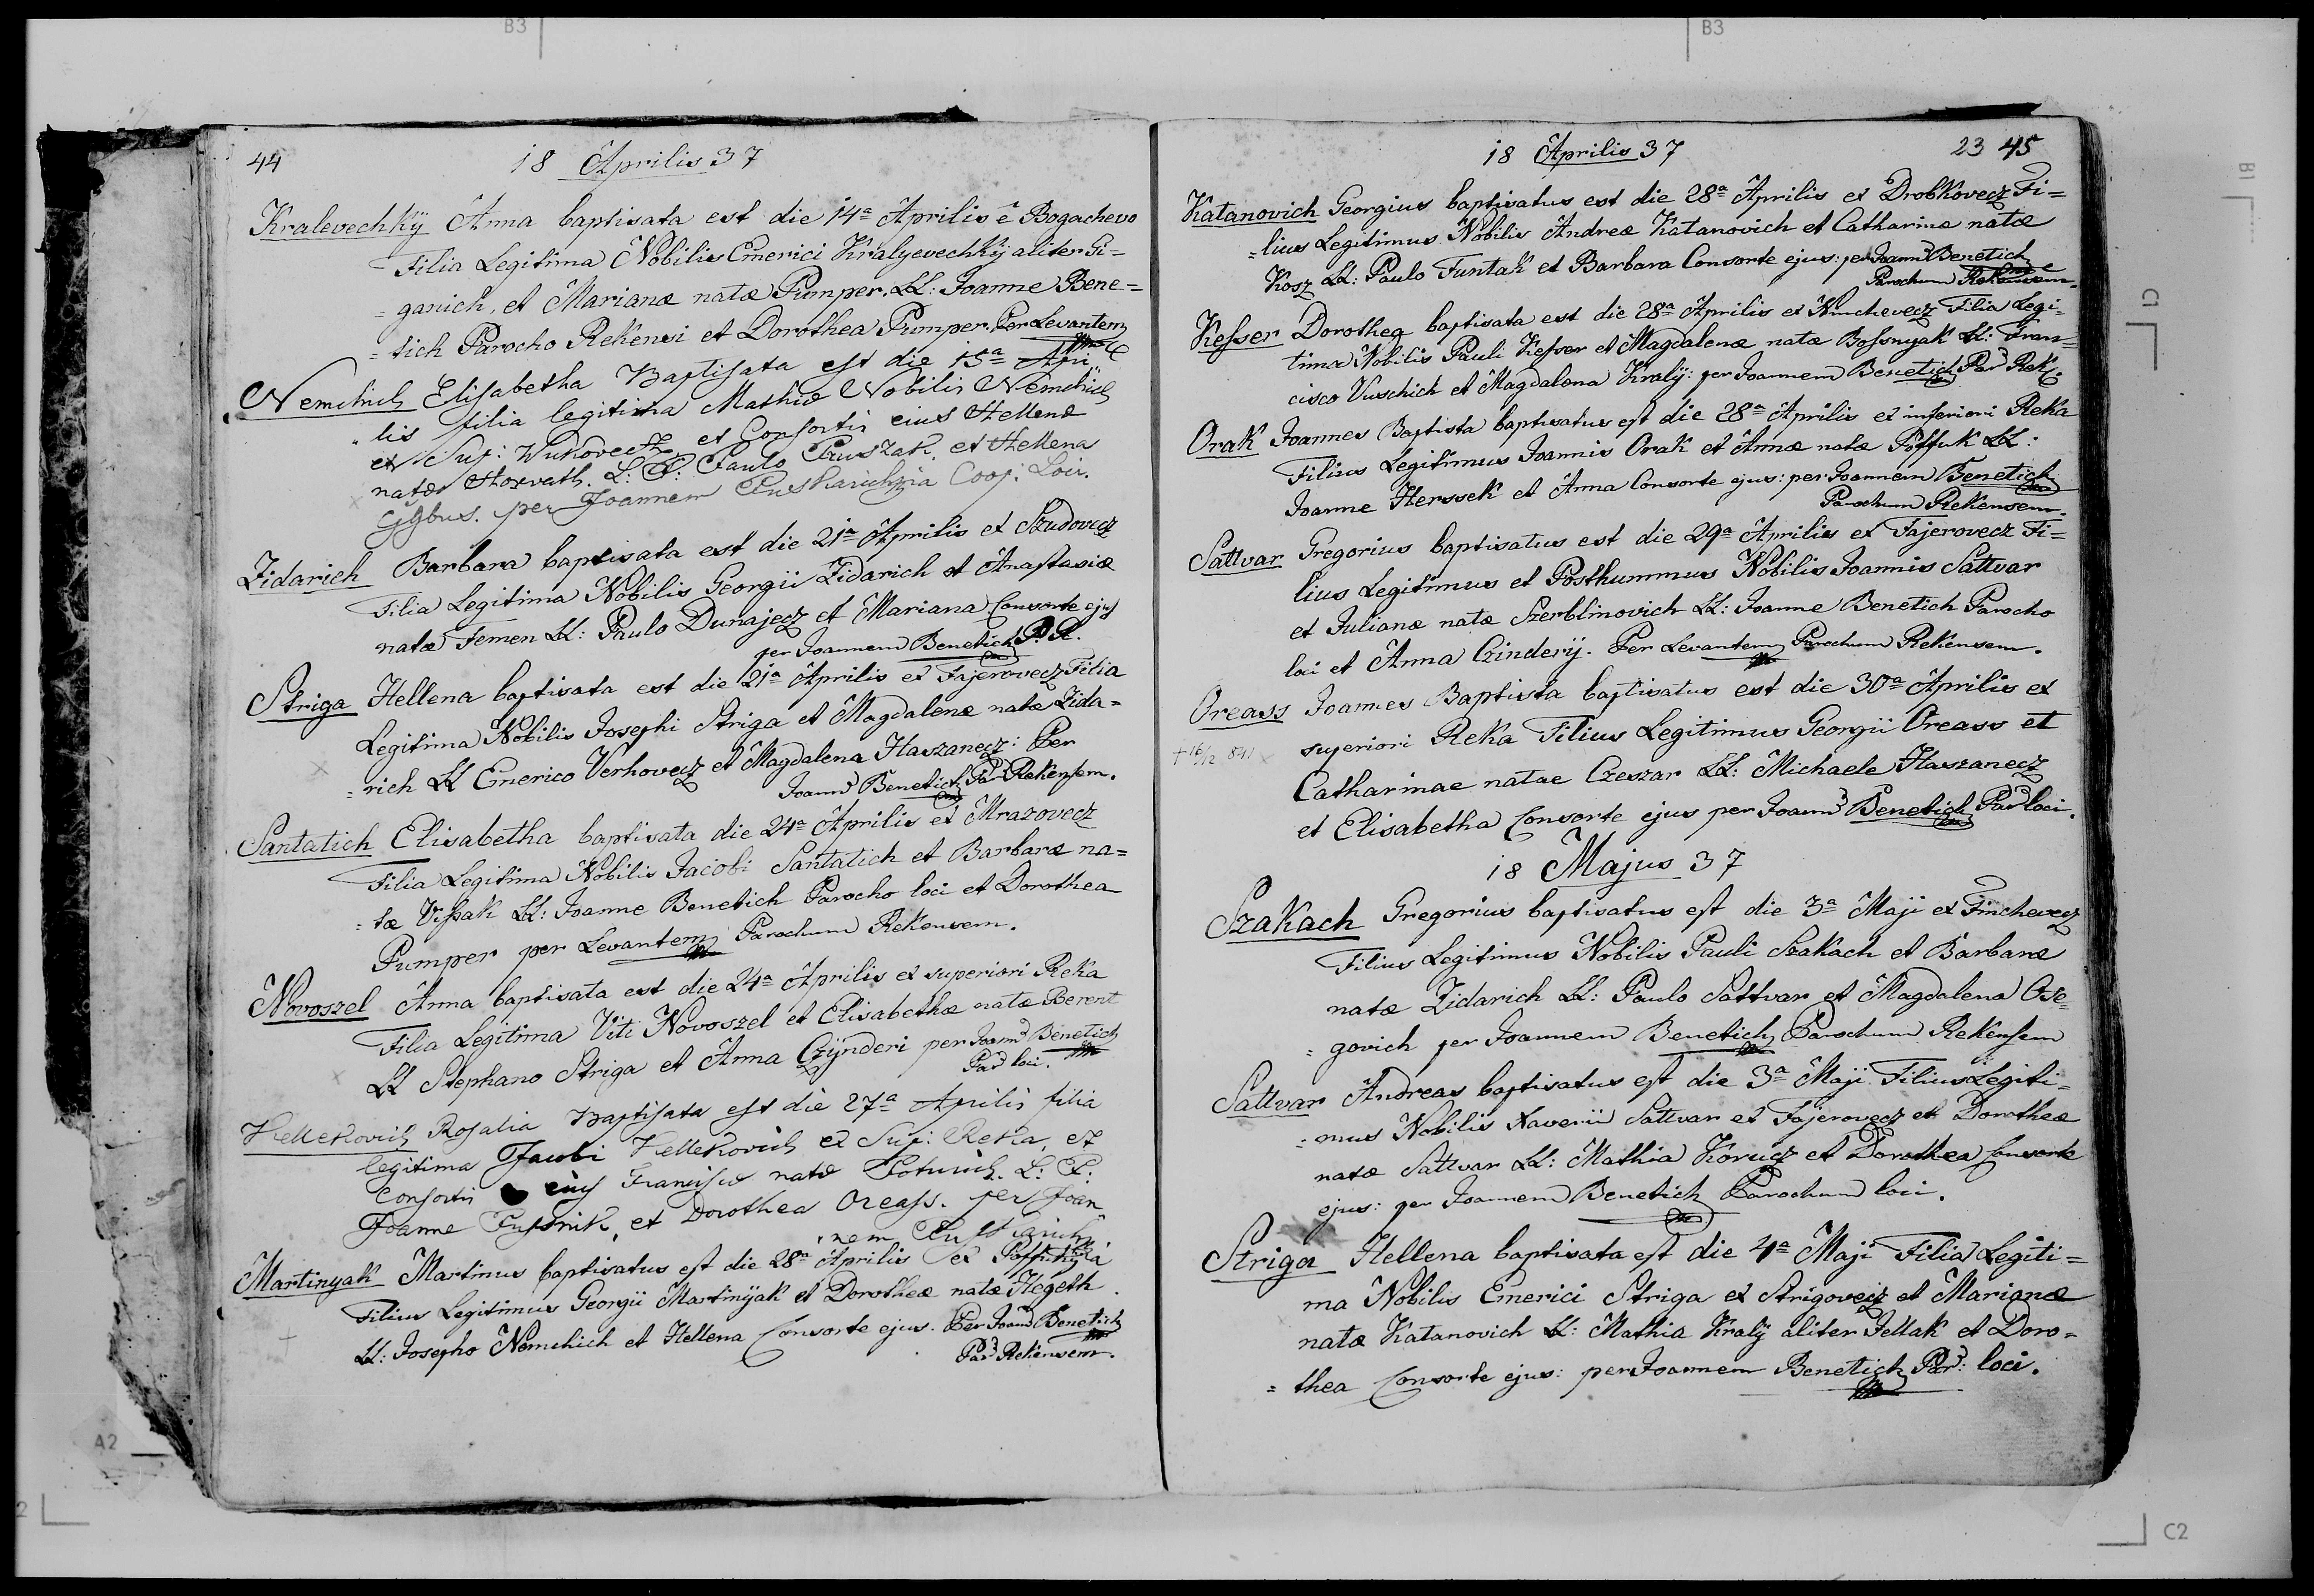 B3
B3
B1
C1
A2
2
C2
44
18 Aprilis 37
Kralevechkÿ Anna baptisata est die 14a Aprilis ê Bogachevo
Filia Legitima Nobilis Emerici Kralyevechkÿ aliter Gi=
= ganich, et Marianæ natæ Pumper. LL: Joanne Bene=
= tich Parocho Rekensi et Dorothea Pumper. Per Levantem
Nemchich Elisabetha Baptisata est die 15a Apri
lis filia legitima Mathiæ Nobilis Nemchich
ex Sup: Vukovecz et Consortis eius Hellenæ
natæ Horvath. L: P: Paulo Pruszak, et Hellena
Ggbus. per Joannem Coop. Loci.
Zidarich Barbara baptisata est die 21a Aprilis ex Szudovecz
Filia Legitima Nobilis Georgii Zidarich et Anastasiæ
natæ Femen LL: Paulo Dunajecz et Mariana Consorte ejus
per Joannem Benetich P. R.
Striga Hellena baptisata est die 21a Aprilis ex Fajerovecz Filia
Legitima Nobilis Josephi Striga et Magdalenæ natæ Zida=
= rich LL Emerico Verhovecz et Magdalena Haszanecz: Per
Joann Benetich Par Rekensem.
Santatich Elisabetha baptisata die 24a Aprilis ex Mrazovecz
Filia Legitima Nobilis Jacobi Santatich et Barbaræ na=
= tæ Vissak LL: Joanne Benetich Parocho loci et Dorothea
Pumper per Levantem Parochum Rekensem.
Novoszel Anna baptisata est die 24a Aprilis ex superiori Reka
Filia Legitima Viti Novoszel et Elisabethæ natæ Berent
LL Stephano Striga et Anna Czÿnderi per Joann Benetich
Par loci.
Hellekovich Rosalia Baptisata est die 27a Aprilis filia
legitima Jacobi Hellekovich ex Sup: Reka, et
Consortis eius Franciscæ natæ Potvrich. L: P:
Joanne et Dorothea Oreass. per Joan
nem
Martinyak Martinus baptisatus est die 28a Aprilis ex
Filius Legitimus Georgii Martinÿak et Dorotheæ natæ Hegeth.
LL: Josepho Nemchich et Hellena Consorte ejus. Per Joann Benetich
Par Rekensem.
18 Aprilis 37
23 45
Katanovich Georgius baptisatus est die 28a Aprilis ex Drobkovecz Fi=
= lius Legitimus Nobilis Andreæ Katanovich et Catharinæ natæ
Kosz LL: Paulo Funtak et Barbara Consorte ejus: per Joann Benetich
Parochum Rekensem.
Kesser Dorothea baptisata est die 28a Aprilis ex Finchevecz Filia Legi=
tima Nobilis Pauli Kesser et Magdalenæ natæ Bossnyak LL: Fran=
cisco Vuschich et Magdalena Kralÿ: per Joannem Benetich Par Rek.
Orak Joannes Baptista baptisatus est die 28a Aprilis ex inferiori Reka
Filius Legitimus Joannis Orak et Annæ natæ LL:
Joanne Herssek et Anna Consorte ejus: per Joannem Benetich
Parochum Rekensem.
Sattvar Gregorius baptisatus est die 29a Aprilis ex Fajerovecz Fi=
lius Legitimus et Posthummus Nobilis Joannis Sattvar
et Julianæ natæ Szerblinovich LL: Joanne Benetich Parocho
loci et Anna Czinderÿ. Per Levantem Parochum Rekensem.
Oreass Joannes Baptista baptisatus est die 30a Aprilis ex
+ 16/12 841 superiori Reka Filius Legitimus Georgii Oreass et
Catharinae natae Czeszar LL: Michaele Haszanecz
et Elisabetha Consorte ejus per Joann Benetich Par loci.
18 Majus 37
Szakach Gregorius baptisatus est die 3a Maji ex Finchevecz
Filius Legitimus Nobilis Pauli Szakach et Barbaræ
natæ Zidarich LL: Paulo Sattvar et Magdalena Ose=
= govich per Joannem Benetich Parochum Rekensem
Sattvar Andreas baptisatus est die 3a Maji Filius Legiti=
= mus Nobilis Xaverii Sattvar ex Fajerovecz et Dorotheæ
natæ Sattvar LL: Mathia Korucz et Dorothea Consorte
ejus: per Joannem Benetich Parochum loci.
Striga Hellena baptisata est die 4a Maji Filia Legiti=
ma Nobilis Emerici Striga ex Strigovecz et Marianæ
natæ Katanovich LL: Mathia Kralÿ aliter Jellak et Doro=
= thea Consorte ejus: per Joannem Benetich Par: loci.